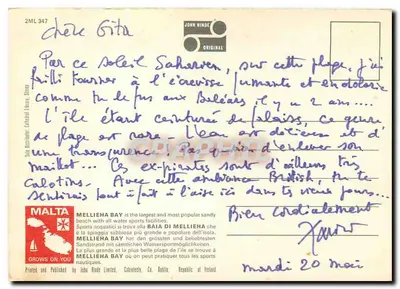 2ML 347
JOHN HINDE
ORIGINAL
Chère Gita
Par ce soleil Saharien, sur cette plage, j'ai
failli tourner à l'écrevisse fumante et endolorie
comme tu le fus aux Baléares il y a 2 ans....
L'île étant ceinturée de falaises, ce genre
de plage est rare. L'eau est délicieuse et d'
une transparence. Pas besoin d'enlever son
maillot... Ces ex-pirates sont d'ailleurs très
calotins. Avec cette ambiance British, tu te
sentirais tout à fait à l'aise ici dans tes vieux jours...
Bien Cordialement
mardi 20 mai
MALTA
GROWS ON YOU
MELLIEHA BAY is the largest and most popular sandy
beach with all water sports facilities.
BAIA DI MELLIEHA che
è la spiaggia sabbiosa più grande e popolare dell'isola.
MELLIEHA BAY
Sandstrand mit sämtlichen Wassersportmöglichkeiten.
La plus grande et la plus belle plage de l'île se trouve à
MELLIEHA BAY où on peut pratiquer tous les sports
nautiques.
Printed and Published by John Hinde Limited, Cabinteely, Co. Dublin, Republic of Ireland